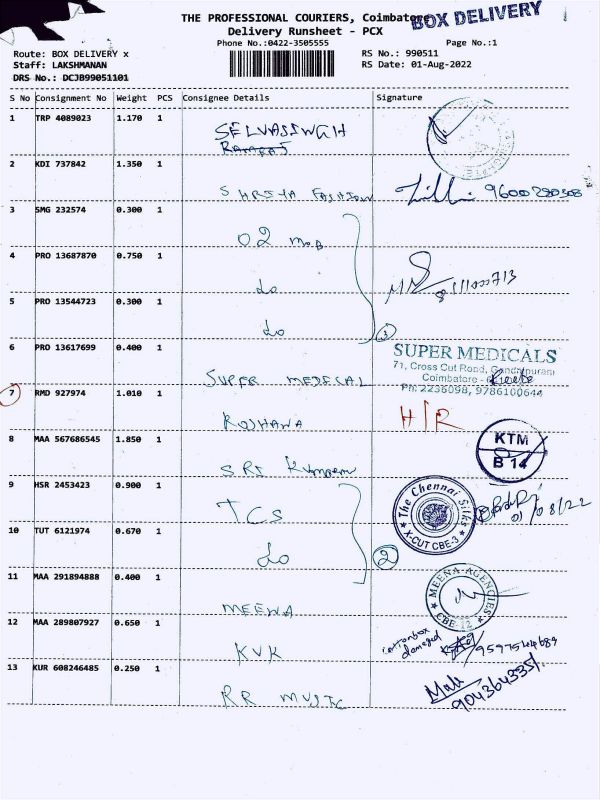 THE PROFESSIONAL COURIERS, Coimbatore
BOX DELIVERY
Delivery Runsheet - PCX
Phone No.:0422-3505555
Page No.:1
Route: BOX DELIVERY x
RS No.: 990511
Staff: LAKSHMANAN
RS Date: 01-Aug-2022
DRS No.: DCJB99051101
S No Consignment No Weight PCS Consignee Details Signature
1 TRP 4089023 1.170 1
SELVASINGH
2 KDI 737842 1.350 1
SHRIYA FASHION
3 SMG 232574 0.300 1
O2 mob
4 PRO 13687870 0.750 1
do
5 PRO 13544723 0.300 1
do
3
6 PRO 13617699 0.400 1
SUPER MEDICALS
71, Cross Cut Road, Gandhipuram
Coimbatore -
Ph: 2236098, 9786100644
SUPER MEDICAL
7 RMD 927974 1.010 1
ROSHANA
H/R
8 MAA 567686545 1.850 1
KTM
B 14
SRI Kumaran
9 HSR 2453423 0.900 1
TCS
The Chennai Silks
X-CUT CBE-3
01/08/22
10 TUT 6121974 0.670 1
do
2
11 MAA 291894888 0.400 1
MEENA
MEENA AGENCIES
CBE-12
12 MAA 289807927 0.650 1
KVK
cottonbox
damaged
9597544689
13 KUR 608246485 0.250 1
RR MUSIC